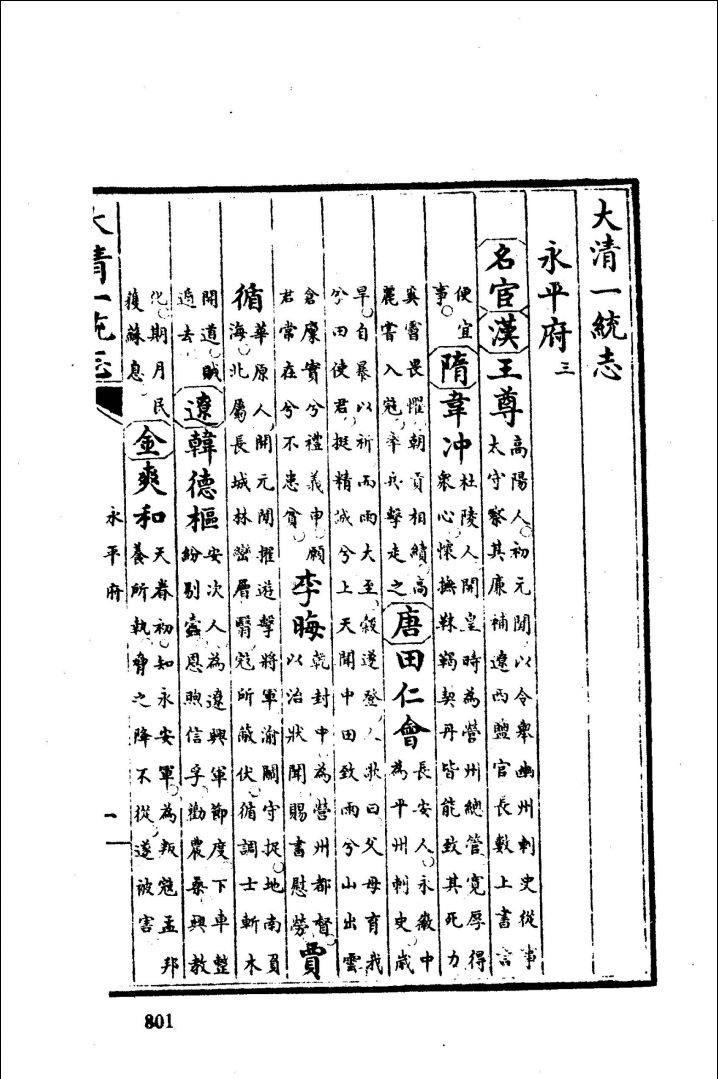 大清一統志
永平府三
名官漢王尊高陽人初元間以令舉幽州刺史從事
太守察其廉補遼西鹽官長數上書言
便宜
事隋韋冲杜陵人開皇時為營州總管寬厚得
衆心懷撫靺鞨契丹皆能致其死力
奚霫畏懼朝貢相續高
麗嘗入寇率兵擊走之唐田仁會長安人永徽中
為平州刺史歲
旱自暴以祈而雨大至穀遂登人歌曰父母育我
兮田使君挺精誠兮上天聞中田致雨兮山出雲
倉廩實兮禮義申願
君常在兮不患貧李晦乾封中為營州都督
以治狀聞賜書慰勞賈
循華原人開元間擢遊擊將軍渝關守捉地南負
海北屬長城林巒層翳寇所蔽伏循調士斬木
開道賊
遁去遼韓德樞安次人為遼興軍節度下車整
紛剔蠹恩煦信孚勸農桑興教
化期月民
獲蘇息金爽和天眷初知永安軍為叛寇孟邦
養所執脅之降不從遂被害
大清一統志
永平府
一
801